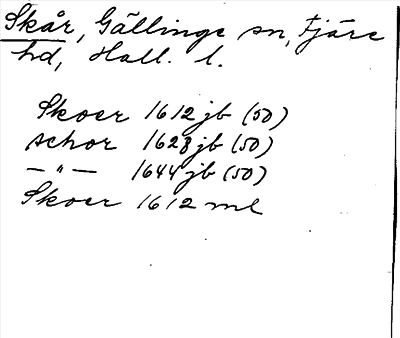 Skår, Gällinge sn, Fjäre
hd, Hall. l.
Skoer 1612 jb (50)
schor 1628 jb (50)
— " — 1644 jb (50)
Skoer 1612 ml